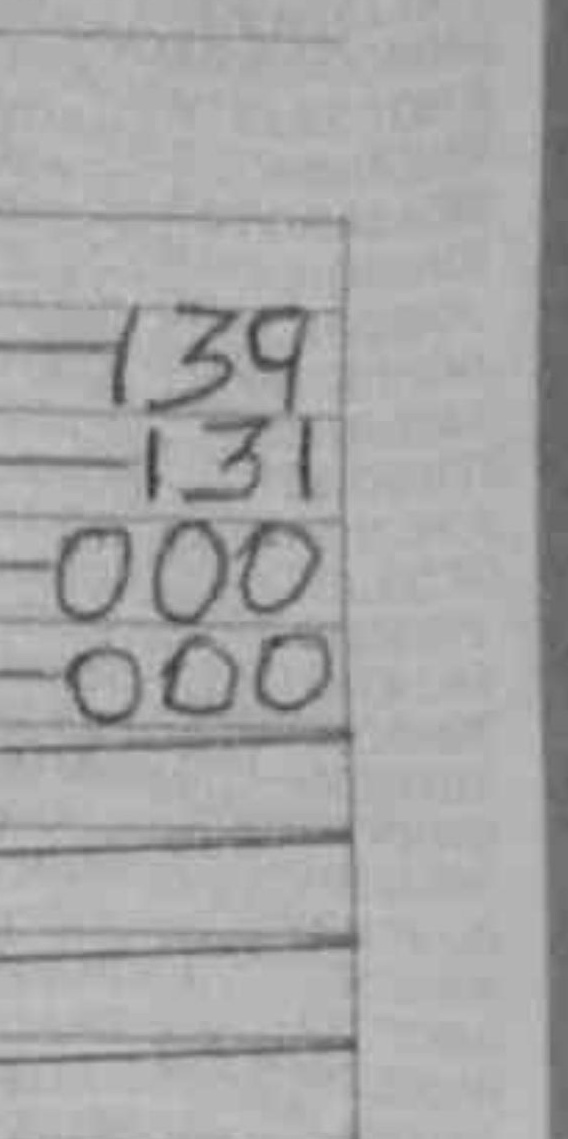 139
131
000
000